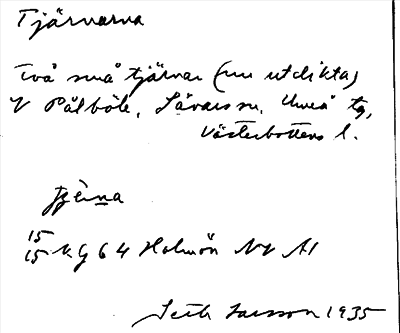 Tjärnarna
Två små tjärnar (nu utdikta)
V Pålböle, Sävars sn, Umeå tg,
Västerbottens l.
15
15 kg 64 Holmön NV A1
Seth Larsson 1935